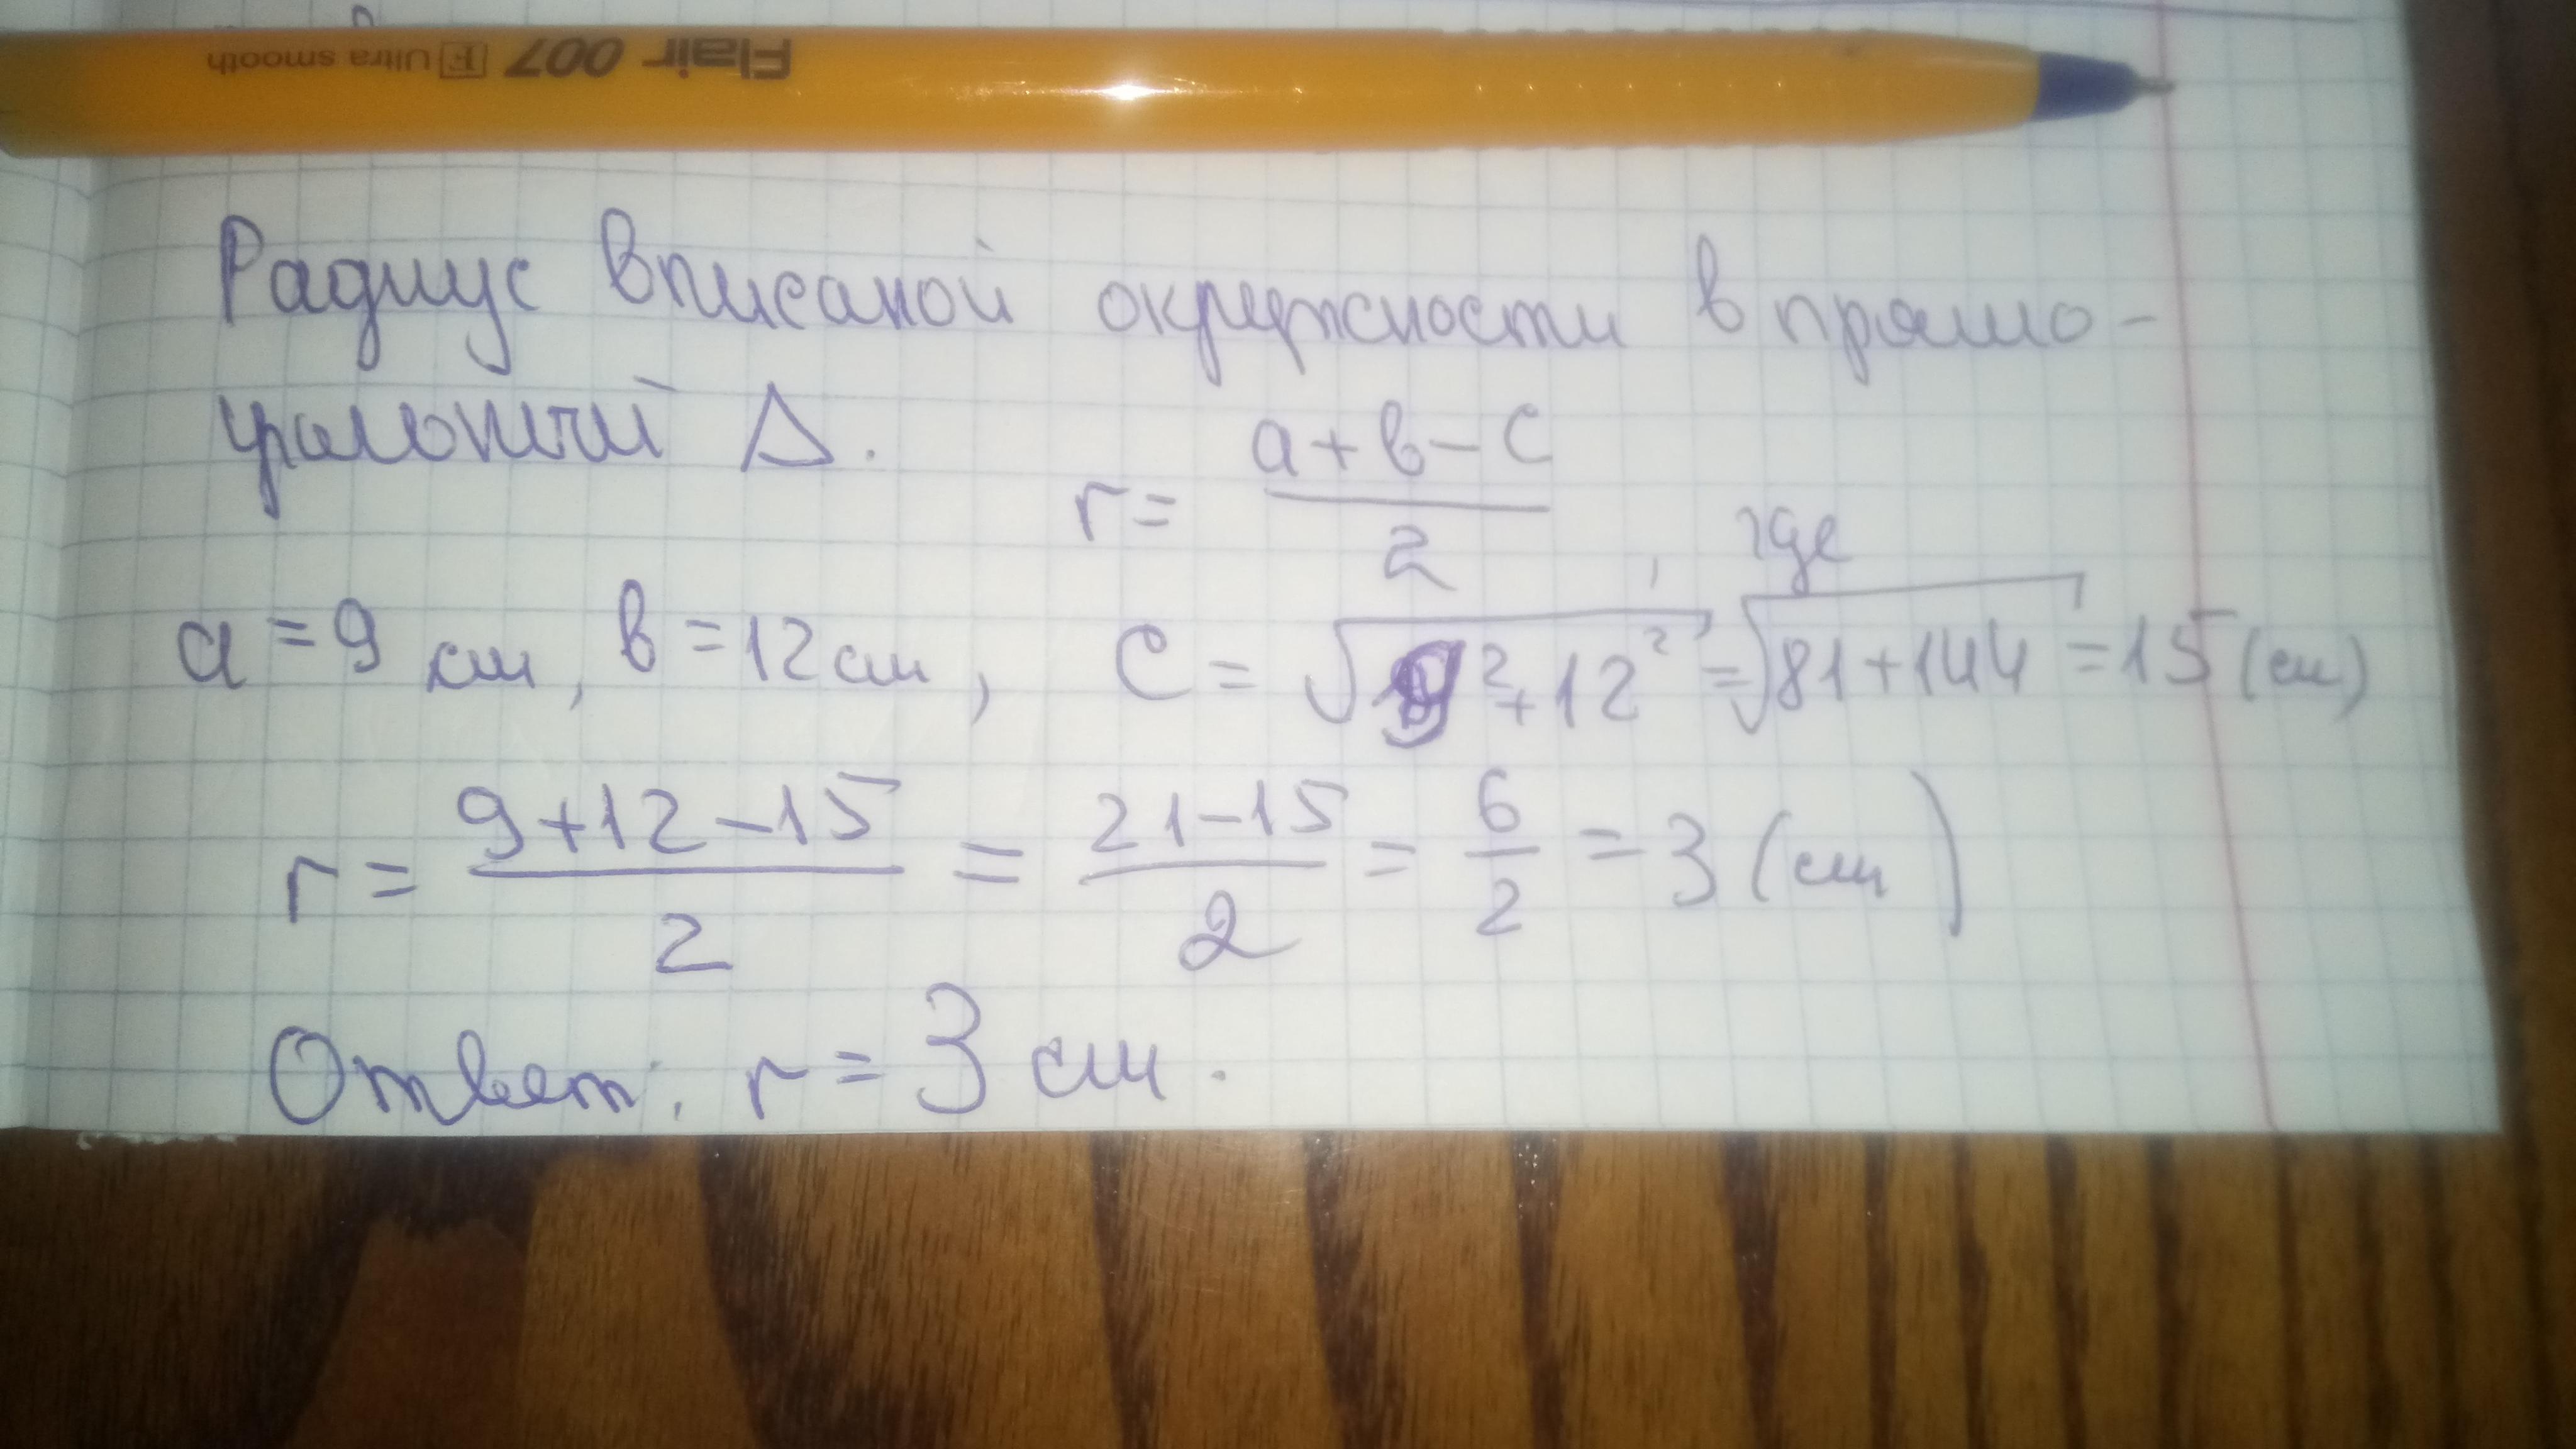 Flair 007 F Ultra smooth
Радиус вписаной окружности в прямо-
угольный Δ.
r = \frac{a+в-c}{2}, где
a = 9 см, в = 12 см, c = \sqrt{9²+12²} = \sqrt{81+144} = 15 (см)
r = \frac{9+12-15}{2} = \frac{21-15}{2} = \frac{6}{2} = 3 (см)
Ответ: r = 3 см.